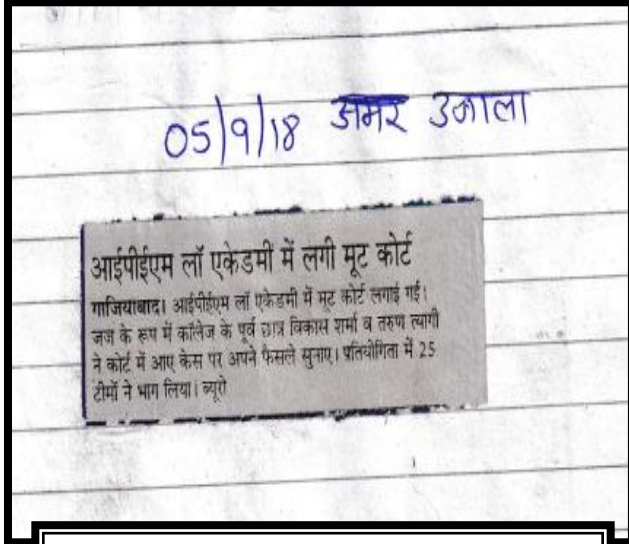 05/9/18 अमर उजाला
आईपीईएम लॉ एकेडमी में लगी मूट कोर्ट
गाजियाबाद। आईपीईएम लॉ एकेडमी में मूट कोर्ट लगाई गई।
जज के रूप में कॉलेज के पूर्व छात्र विकास शर्मा व तरुण त्यागी
ने कोर्ट में आए केस पर अपने फैसले सुनाए। प्रतियोगिता में 25
टीमों ने भाग लिया। ब्यूरो